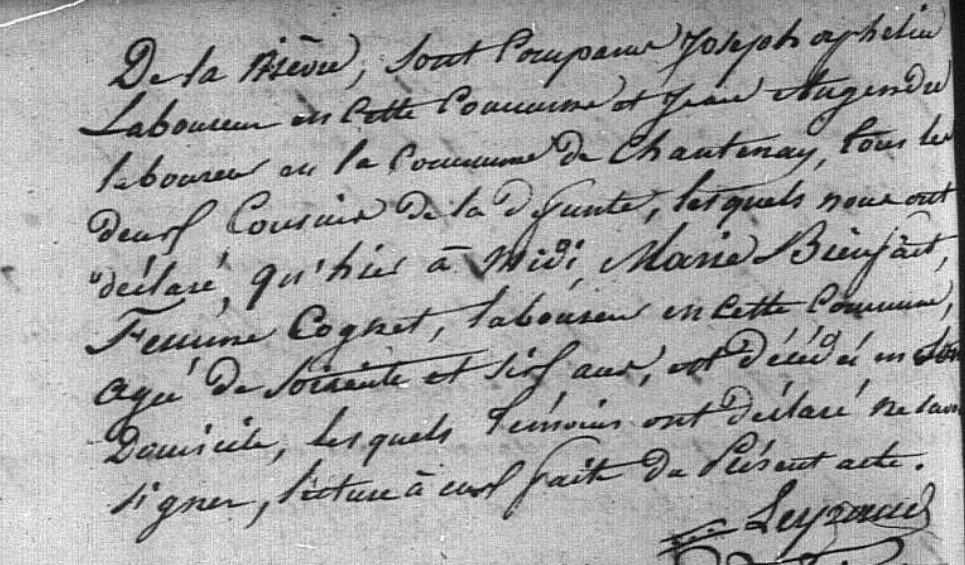 De la Nièvre, sont Comparus Joseph orphelin
Laboureur en cette Commune et Jean Augendre
laboureur en la Commune de Chantenay, tous les
deux Cousins de la defunte, lesquels nous ont
déclaré, qu'hier à midi, Marie Bienfait,
Femme Cognet, laboureur en cette Commune,
agé de soixante et six ans, est décédé en son
Domicile, lesquels témoins ont déclaré ne savoir
signer, lecture à eux faite du Présent acte.